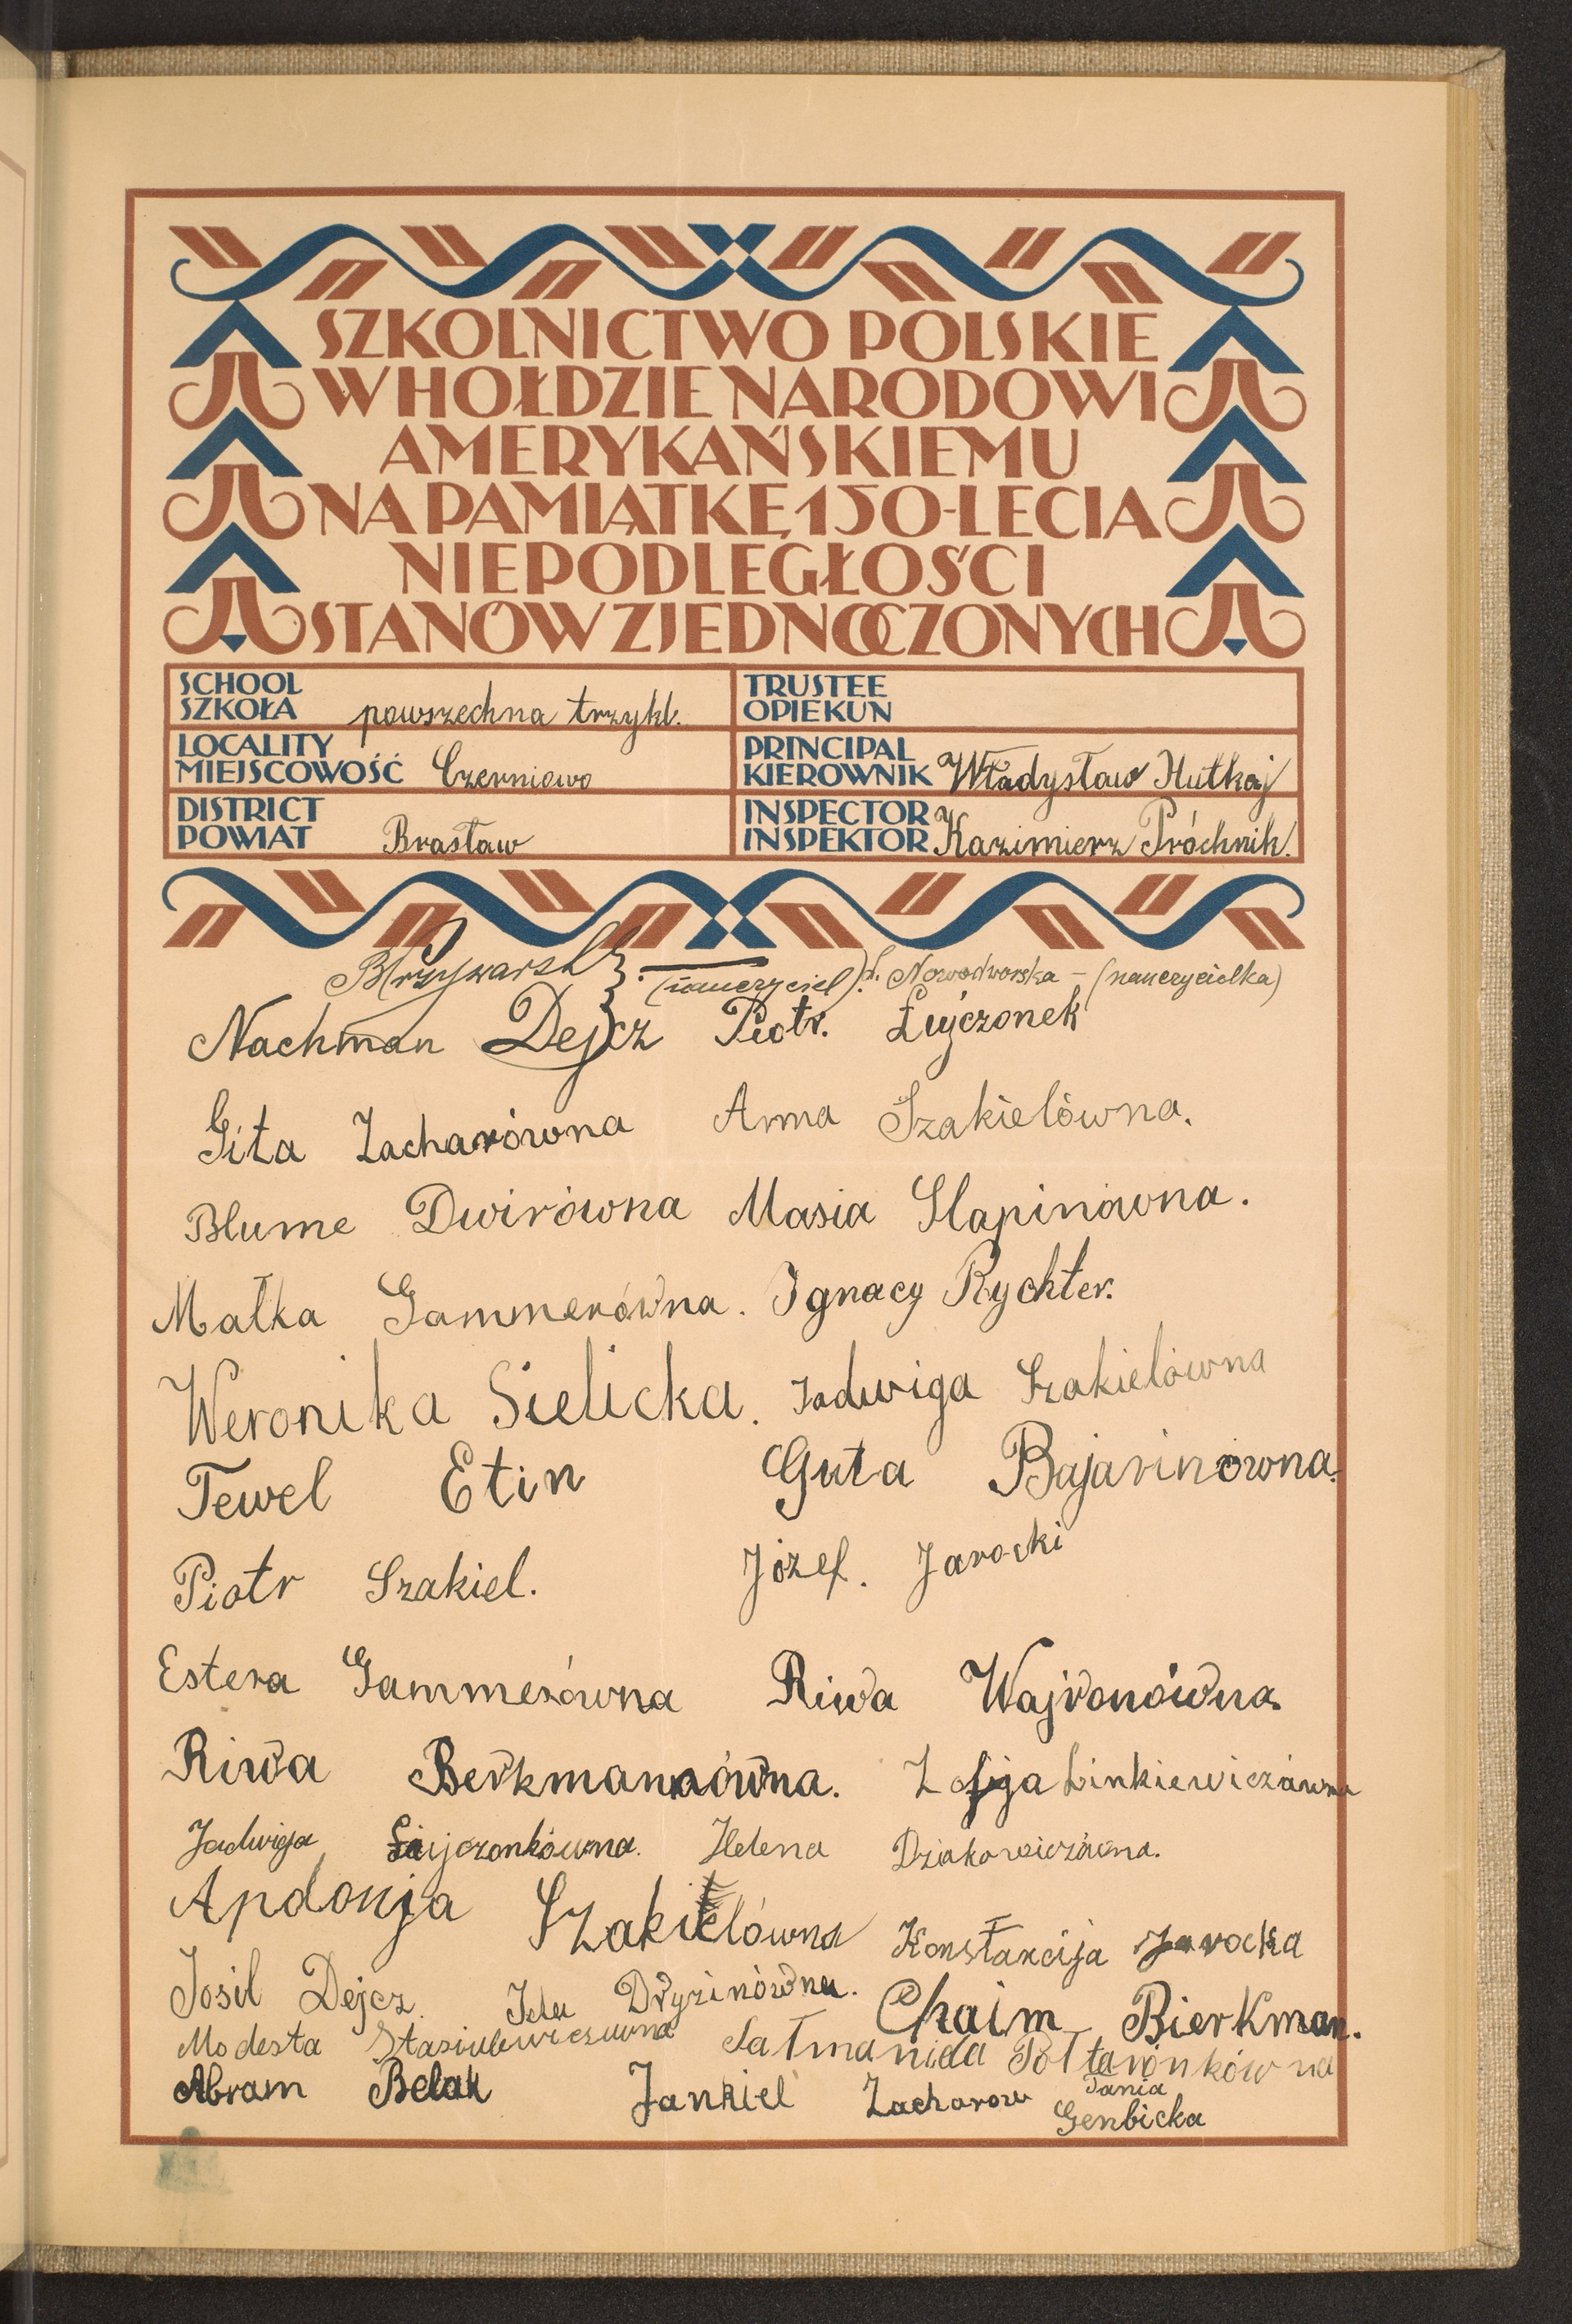 SZKOLNICTWO POLSKIE
W HOŁDZIE NARODOWI
AMERYKAŃSKIEMU
NA PAMIĄTKĘ 150-LECIA
NIEPODLEGŁOŚCI
STANÓW ZJEDNOCZONYCH
SCHOOL
SZKOŁA powszechna trzykl.
TRUSTEE
OPIEKUN
LOCALITY
MIEJSCOWOŚĆ Czerniowo
PRINCIPAL
KIEROWNIK Władysław Hutkaj
DISTRICT
POWIAT Brasław
INSPECTOR
INSPEKTOR Kazimierz Próchnik.
(nauczyciel). Nowodworska - (nauczycielka)
Nachman Dejcz Piotr. Łujczonek
Gita Zacharówna Anna Szakielówna.
Blume Dwirówna Masia Slapinówna.
Małka Gammerówna. Ignacy Rychter.
Weronika Sielicka. Jadwiga Szakielówna
Tewel Etin Guta Bajarinówna.
Piotr Szakiel. Józef. Jarocki
Estera Gammerówna Riwa Wajnonówna
Riwa Berkmanówna. Zofja Linkiewiczówna
Jadwiga Łujczonkówna. Helena Dziakowiczówna.
Apolonja Szakielówna Konstancija Jarocka
Josil Dejcz. Ida Dryzinówna. Chaim Bierkman.
Modesta Stasiulewiczuwna Połtaronkówna
Abram Belak Jankiel Zacharow Tania
Genbicka